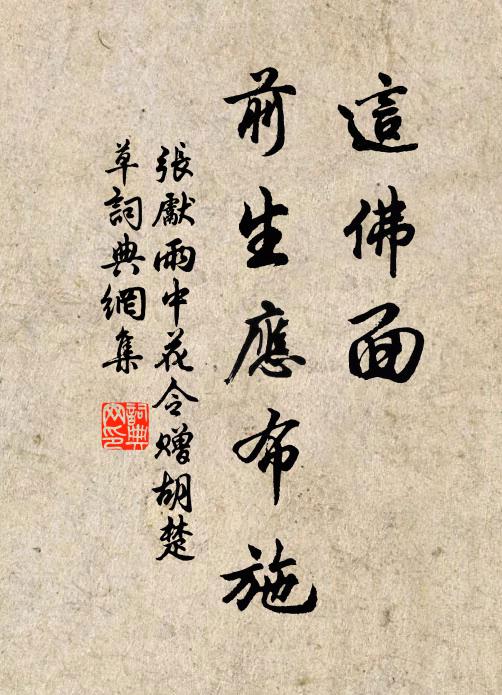 這佛面
前生應布施
張獻雨中花令贈胡楚
草詞典網集
詞典
网印